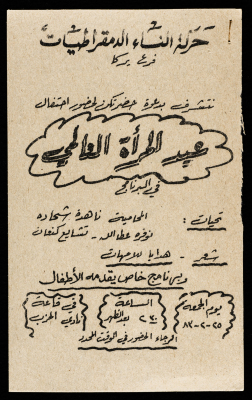 حركة النساء الدمقراطيات
فرع يركا
نتشرف بدعوة حضرتكن لحضور احتفال
عيد المرأة العالمي
في البرنامج
تحيات : المحامية ناهدة شحاده
نوفره عطاالله - تشايع كنعان
شعر - هدايا للأمهات
وبرنامج خاص يقدمه الأطفال
يوم الجمعة
٢٥-٢-٨٣
الساعة
٢٣٠ بعد الظهر
في قاعة
نادي الحزب
الرجاء الحضور في الوقت المحدد